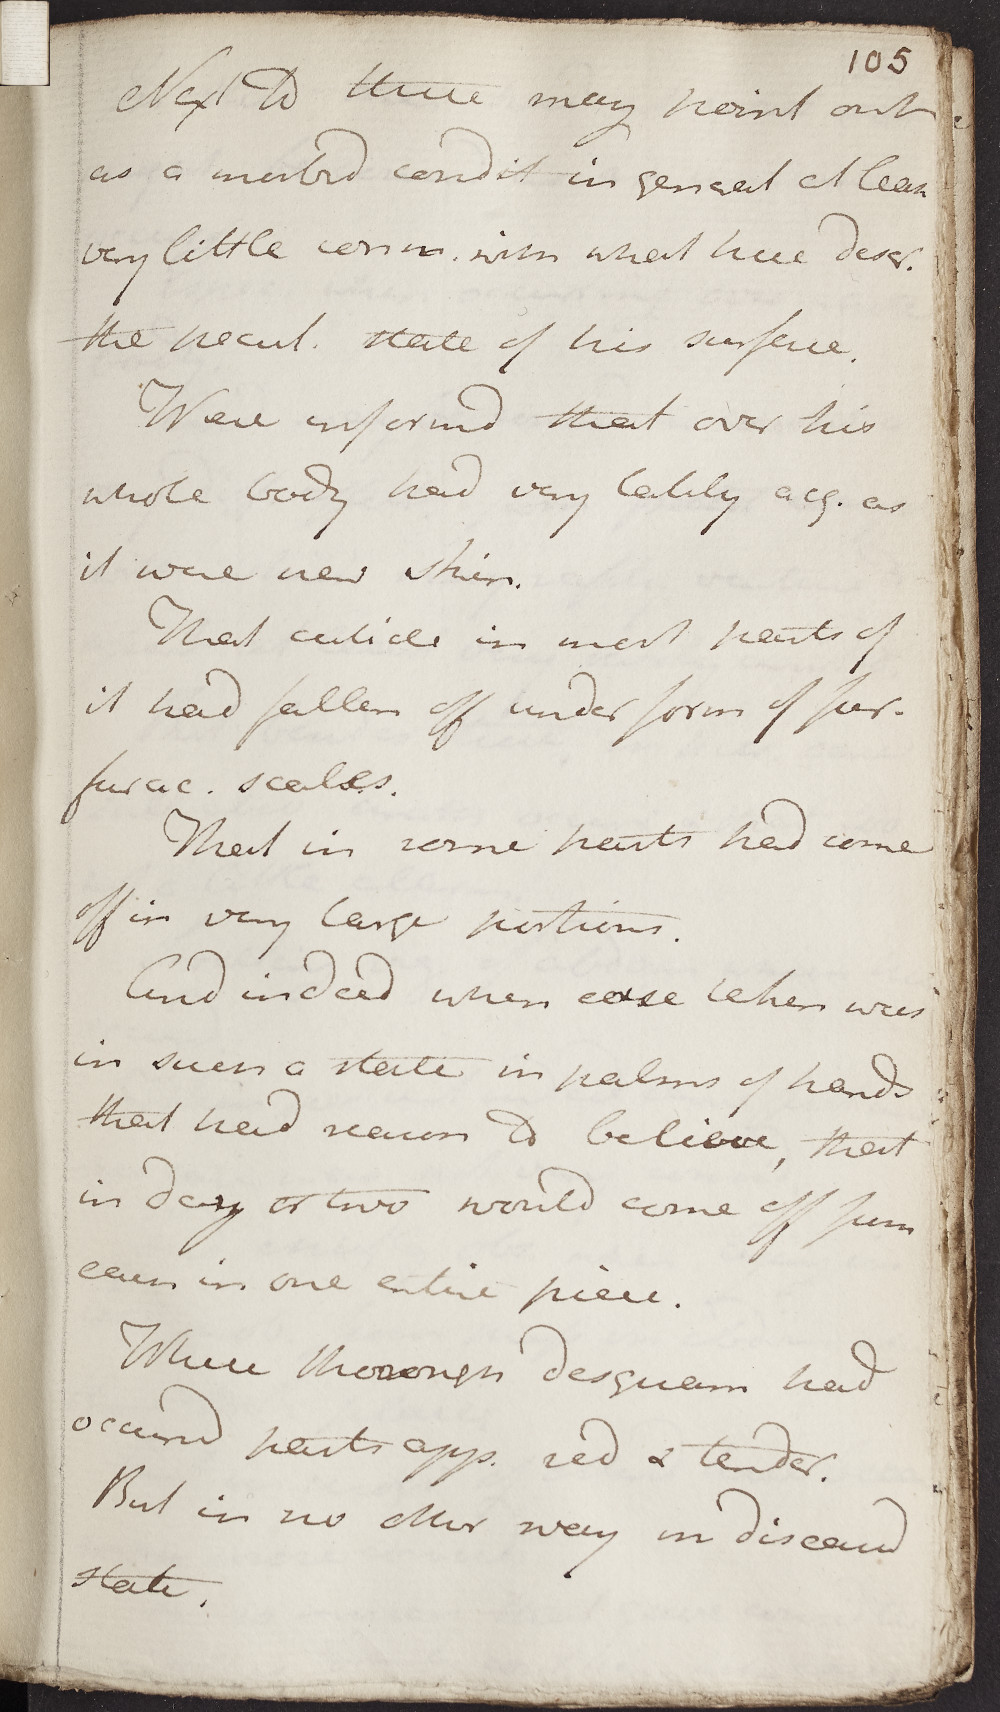 105
Next to these may point out
as a morbid condit in general at leas
very little conn. with what here descr.
the pecul. state of his surface.
Were informd that over his
whole body had very lately acq. as
it were new skin.
That cuticle in most parts of
it had fallen off under form of fur-
furac. scales.
That in some parts had come
off in very large portions.
And indeed when case taken was
in such a state in palms of hands
that had reason to believe, that
in day or two would come off from
each in one entire piece.
Where thorough desquam had
occurrd parts app. red & tender.
But in no other way in diseasd
state.